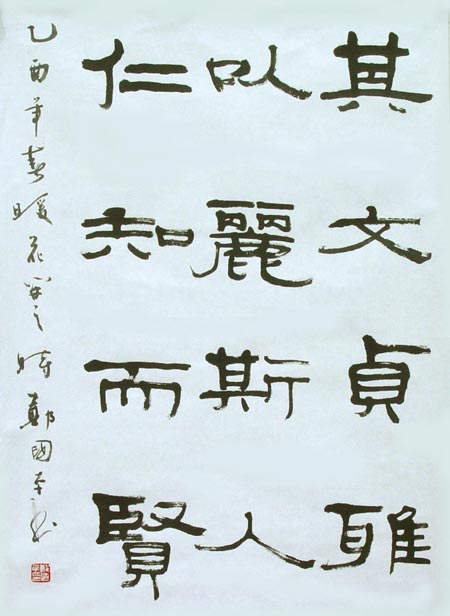 其文貞雅
以麗斯人
仁知而賢
乙酉年春暖花開之時鄭國书